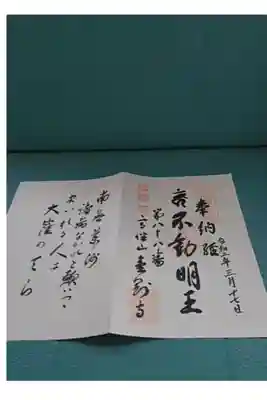 奉納経
令和二年三月十七日
不動明王
第八十八番
高幡山金剛寺
南無薬師
諸病なかれと願いつゝ
まいれる人は
大窪のてら